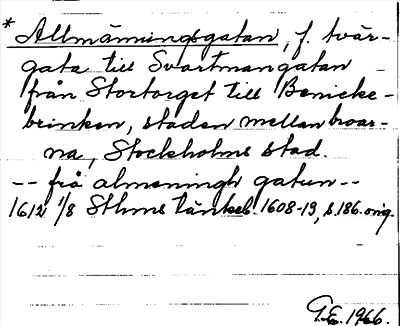 * Allmänningsgatan, f. tvär-
gata till Svartmangatan
från Stortorget till Benicke-
brinken, staden mellan broar-
na, Stockholms stad.
-- frå almeningh gatun --
1612 1/8 Sthms tänkeb. 1608-13, s. 186. orig.
G.E. 1966.